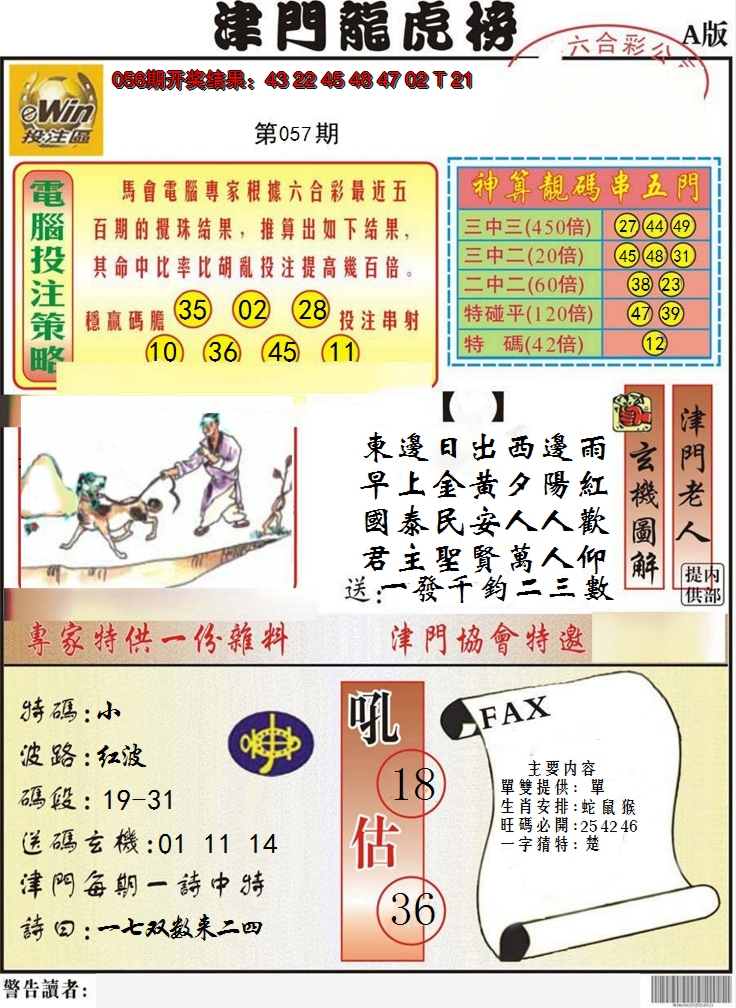 津門龍虎榜
A版
六合彩公
056期开奖结果：43 22 45 48 47 02 T 21
eWin
投注區
第057期
電腦投注策略
馬會電腦專家根據六合彩最近五
百期的攪珠结果，推算出如下结果，
其命中比率比胡亂投注提高幾百倍。
穩赢碼膽 35 02 28 投注串射
10 36 45 11
神算靚碼串五門
三中三(450倍) 27 44 49
三中二(20倍) 45 48 31
二中二(60倍) 38 23
特碰平(120倍) 47 39
特 碼(42倍) 12
【 】
東邊日出西邊雨
早上金黄夕陽紅
國泰民安人人歡
君主聖賢萬人仰
送：一發千鈞二三數
玄機圖解
津門老人
内部提供
專家特供一份雜料
津門協會特邀
特碼:小
波路:红波
碼段:19-31
送碼玄機:01 11 14
津門每期一詩中特
詩曰:一七双数来二四
吼
18
估
36
FAX
主要内容
單雙提供：單
生肖安排:蛇鼠猴
旺碼必開:25 42 46
一字猜特：楚
警告讀者：